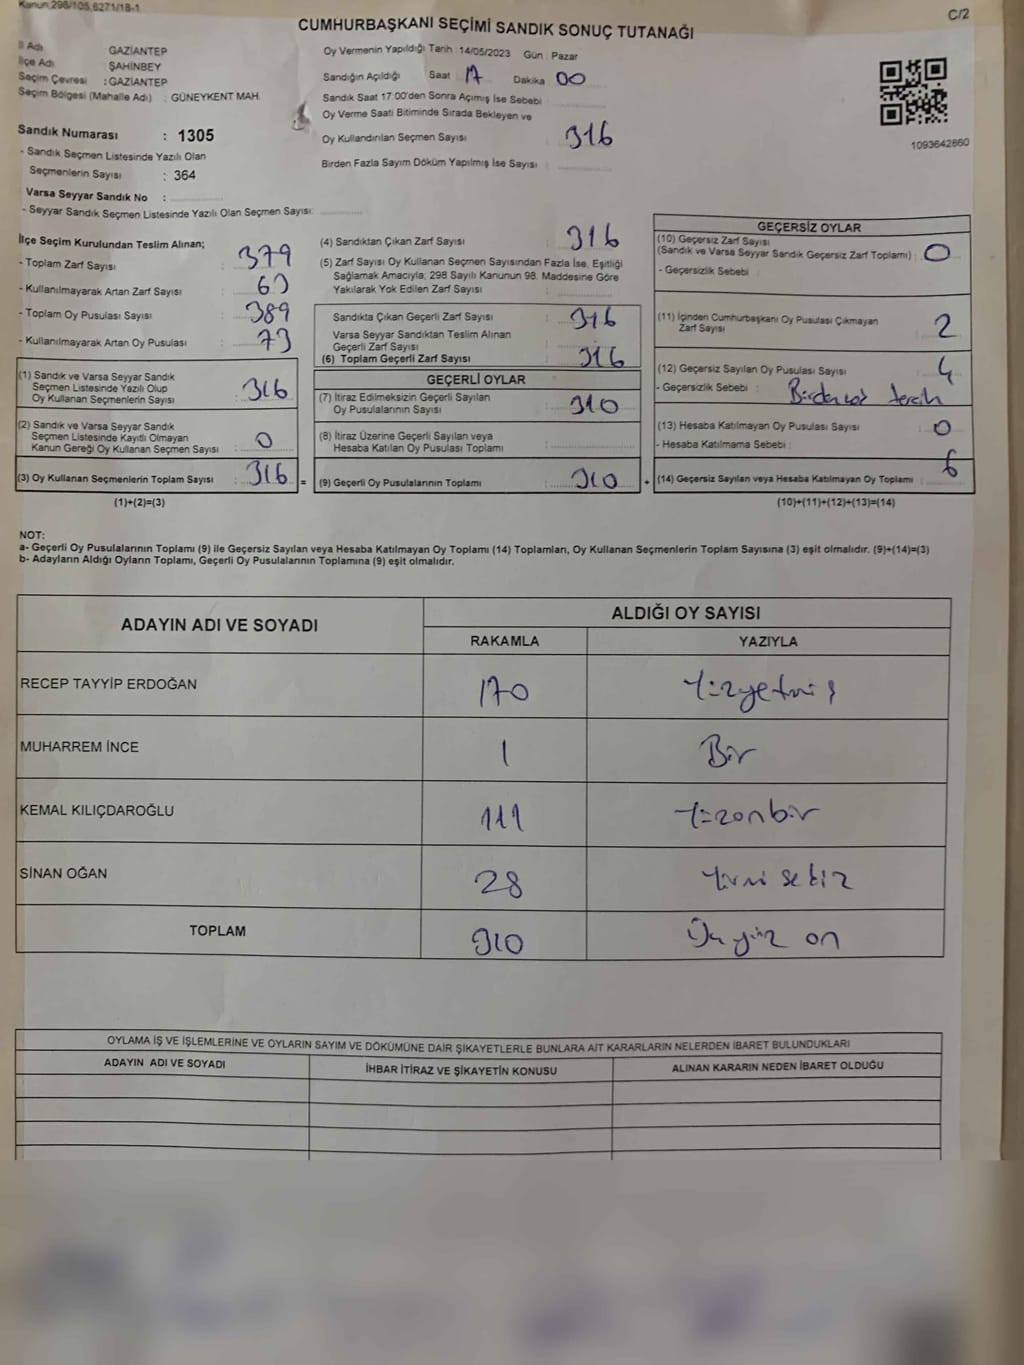 Kanun,298/105,6271/18-1
C/2
CUMHURBAŞKANI SEÇİMİ SANDIK SONUÇ TUTANAĞI
İl Adı : GAZİANTEP
İlçe Adı : ŞAHİNBEY
Seçim Çevresi : GAZİANTEP
Seçim Bölgesi (Mahalle Adı) : GÜNEYKENT MAH.
Sandık Numarası : 1305
- Sandık Seçmen Listesinde Yazılı Olan
Seçmenlerin Sayısı : 364
Varsa Seyyar Sandık No :
- Seyyar Sandık Seçmen Listesinde Yazılı Olan Seçmen Sayısı:
Oy Vermenin Yapıldığı Tarih : 14/05/2023 Gün : Pazar
Sandığın Açıldığı Saat 17 Dakika 00
Sandık Saat 17:00'den Sonra Açılmış İse Sebebi
Oy Verme Saati Bitiminde Sırada Bekleyen ve
Oy Kullandırılan Seçmen Sayısı : 316
Birden Fazla Sayım Döküm Yapılmış İse Sayısı :
1093642860
İlçe Seçim Kurulundan Teslim Alınan;
- Toplam Zarf Sayısı : 379
- Kullanılmayarak Artan Zarf Sayısı : 63
- Toplam Oy Pusulası Sayısı : 389
- Kullanılmayarak Artan Oy Pusulası : 73
(1) Sandık ve Varsa Seyyar Sandık
Seçmen Listesinde Yazılı Olup
Oy Kullanan Seçmenlerin Sayısı : 316
(2) Sandık ve Varsa Seyyar Sandık
Seçmen Listesinde Kayıtlı Olmayan
Kanun Gereği Oy Kullanan Seçmen Sayısı : 0
(3) Oy Kullanan Seçmenlerin Toplam Sayısı : 316 =
(1)+(2)=(3)
(4) Sandıktan Çıkan Zarf Sayısı : 316
(5) Zarf Sayısı Oy Kullanan Seçmen Sayısından Fazla İse, Eşitliği
Sağlamak Amacıyla; 298 Sayılı Kanunun 98. Maddesine Göre
Yakılarak Yok Edilen Zarf Sayısı :
Sandıkta Çıkan Geçerli Zarf Sayısı : 316
Varsa Seyyar Sandıktan Teslim Alınan
Geçerli Zarf Sayısı :
(6) Toplam Geçerli Zarf Sayısı : 316
GEÇERLİ OYLAR
(7) İtiraz Edilmeksizin Geçerli Sayılan
Oy Pusulalarının Sayısı : 310
(8) İtiraz Üzerine Geçerli Sayılan veya
Hesaba Katılan Oy Pusulası Toplamı :
(9) Geçerli Oy Pusulalarının Toplamı : 310 +
GEÇERSİZ OYLAR
(10) Geçersiz Zarf Sayısı
(Sandık ve Varsa Seyyar Sandık Geçersiz Zarf Toplamı) : 0
- Geçersizlik Sebebi :
(11) İçinden Cumhurbaşkanı Oy Pusulası Çıkmayan
Zarf Sayısı : 2
(12) Geçersiz Sayılan Oy Pusulası Sayısı : 4
- Geçersizlik Sebebi : tercih
(13) Hesaba Katılmayan Oy Pusulası Sayısı : 0
- Hesaba Katılmama Sebebi :
(14) Geçersiz Sayılan veya Hesaba Katılmayan Oy Toplamı : 6
(10)+(11)+(12)+(13)=(14)
NOT:
a- Geçerli Oy Pusulalarının Toplamı (9) ile Geçersiz Sayılan veya Hesaba Katılmayan Oy Toplamı (14) Toplamları, Oy Kullanan Seçmenlerin Toplam Sayısına (3) eşit olmalıdır. (9)+(14)=(3)
b- Adayların Aldığı Oyların Toplamı, Geçerli Oy Pusulalarının Toplamına (9) eşit olmalıdır.
ADAYIN ADI VE SOYADI
ALDIĞI OY SAYISI
RAKAMLA YAZIYLA
RECEP TAYYİP ERDOĞAN 170 Yüzyetmiş
MUHARREM İNCE 1 Bir
KEMAL KILIÇDAROĞLU 111 Yüzonbir
SİNAN OĞAN 28 Yirmi sekiz
TOPLAM 310 Üçyüz on
OYLAMA İŞ VE İŞLEMLERİNE VE OYLARIN SAYIM VE DÖKÜMÜNE DAİR ŞİKAYETLERLE BUNLARA AİT KARARLARIN NELERDEN İBARET BULUNDUKLARI
ADAYIN ADI VE SOYADI İHBAR İTİRAZ VE ŞİKAYETİN KONUSU ALINAN KARARIN NEDEN İBARET OLDUĞU